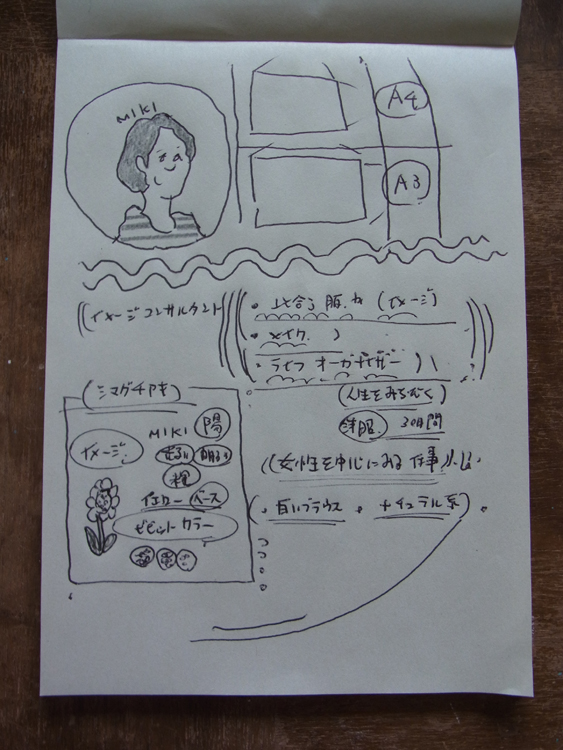 MIKI
A4
A3
イメージコンサルタント
・似合う服.か (イメージ)
・メイク.
・ライフ オーガナイザー
(人生をみちびく)
洋服. 30日間
女性を中心にみる 仕事
・白いブラウス ・ナチュラル系
シマダチアキ
イメージ.
MIKI
陽
明るい
橙
イエローベース
ビビットカラー